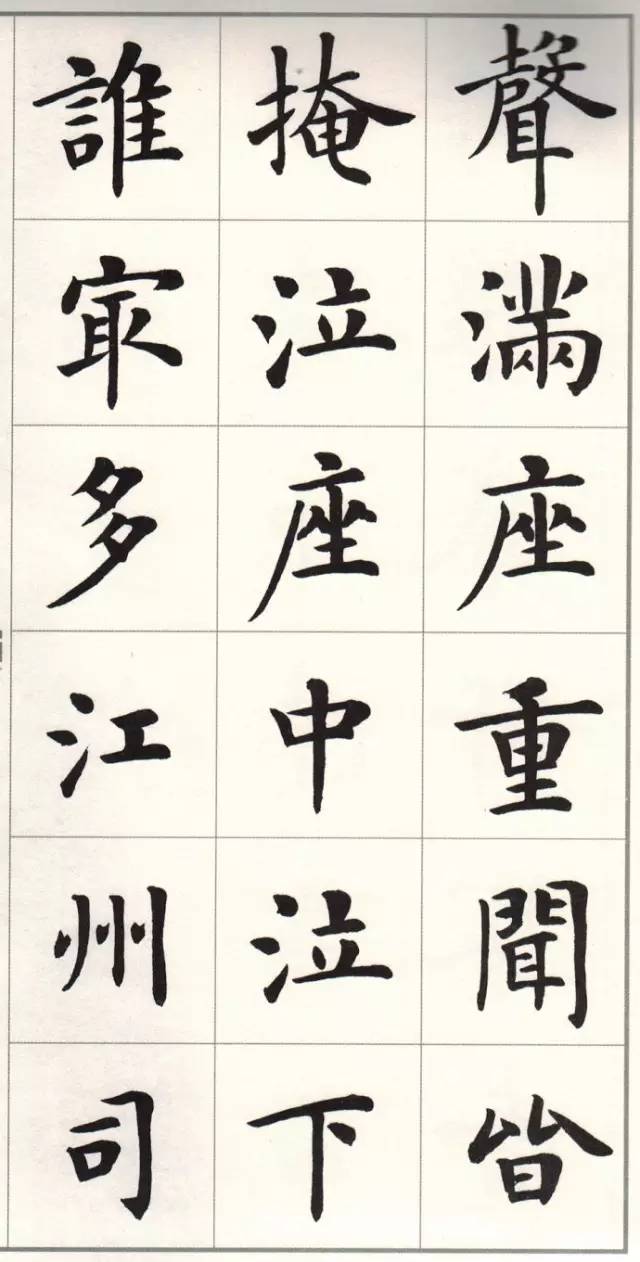 聲滿座重聞皆
掩泣座中泣下
誰冣多江州司